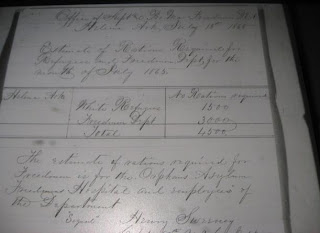 Office of Supt
Helena Ark, July 1st 1865
Estimate of Rations Required for
Refugees and Freedmen Dept for the
month of July 1865
Helena Ark No Rations required
White Refugees 1500
Freedmen Dept 3000
Total 4500
The estimate of rations required for
Freedmen is for the Orphan Asylum
Freedmens Hospital and employees of
the Department
Henry Sweeney